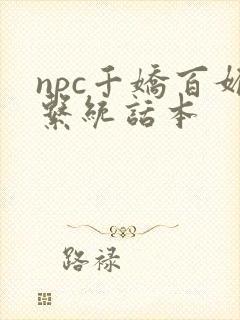 npc千嬌百媚
繫統話本
路禄